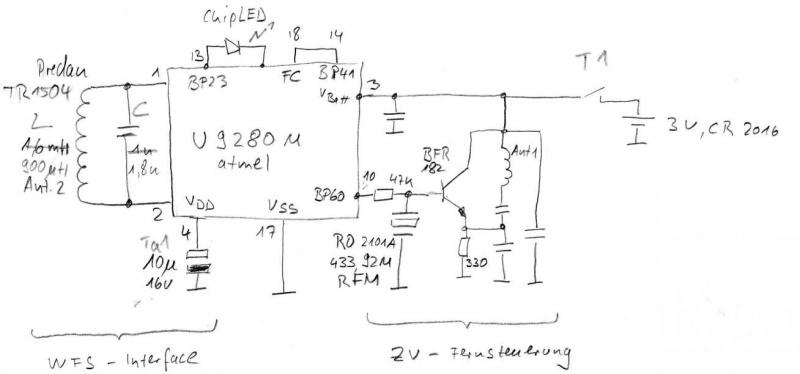 ChipLED
13
18
14
BP23
FC
BP41
Predan
TR1504
L
1,6 mH
900µH
Ant. 2
1
C
1n
1,8n
2
U9280M
atmel
VBatt
3
T1
3V, CR 2016
BP60
10
47k
BFR
182
Ant1
VDD
VSS
4
17
Ta1
10µ
16V
RO 2101A
433,92M
RFM
330
WFS - Interface
ZV - Fernsteuerung